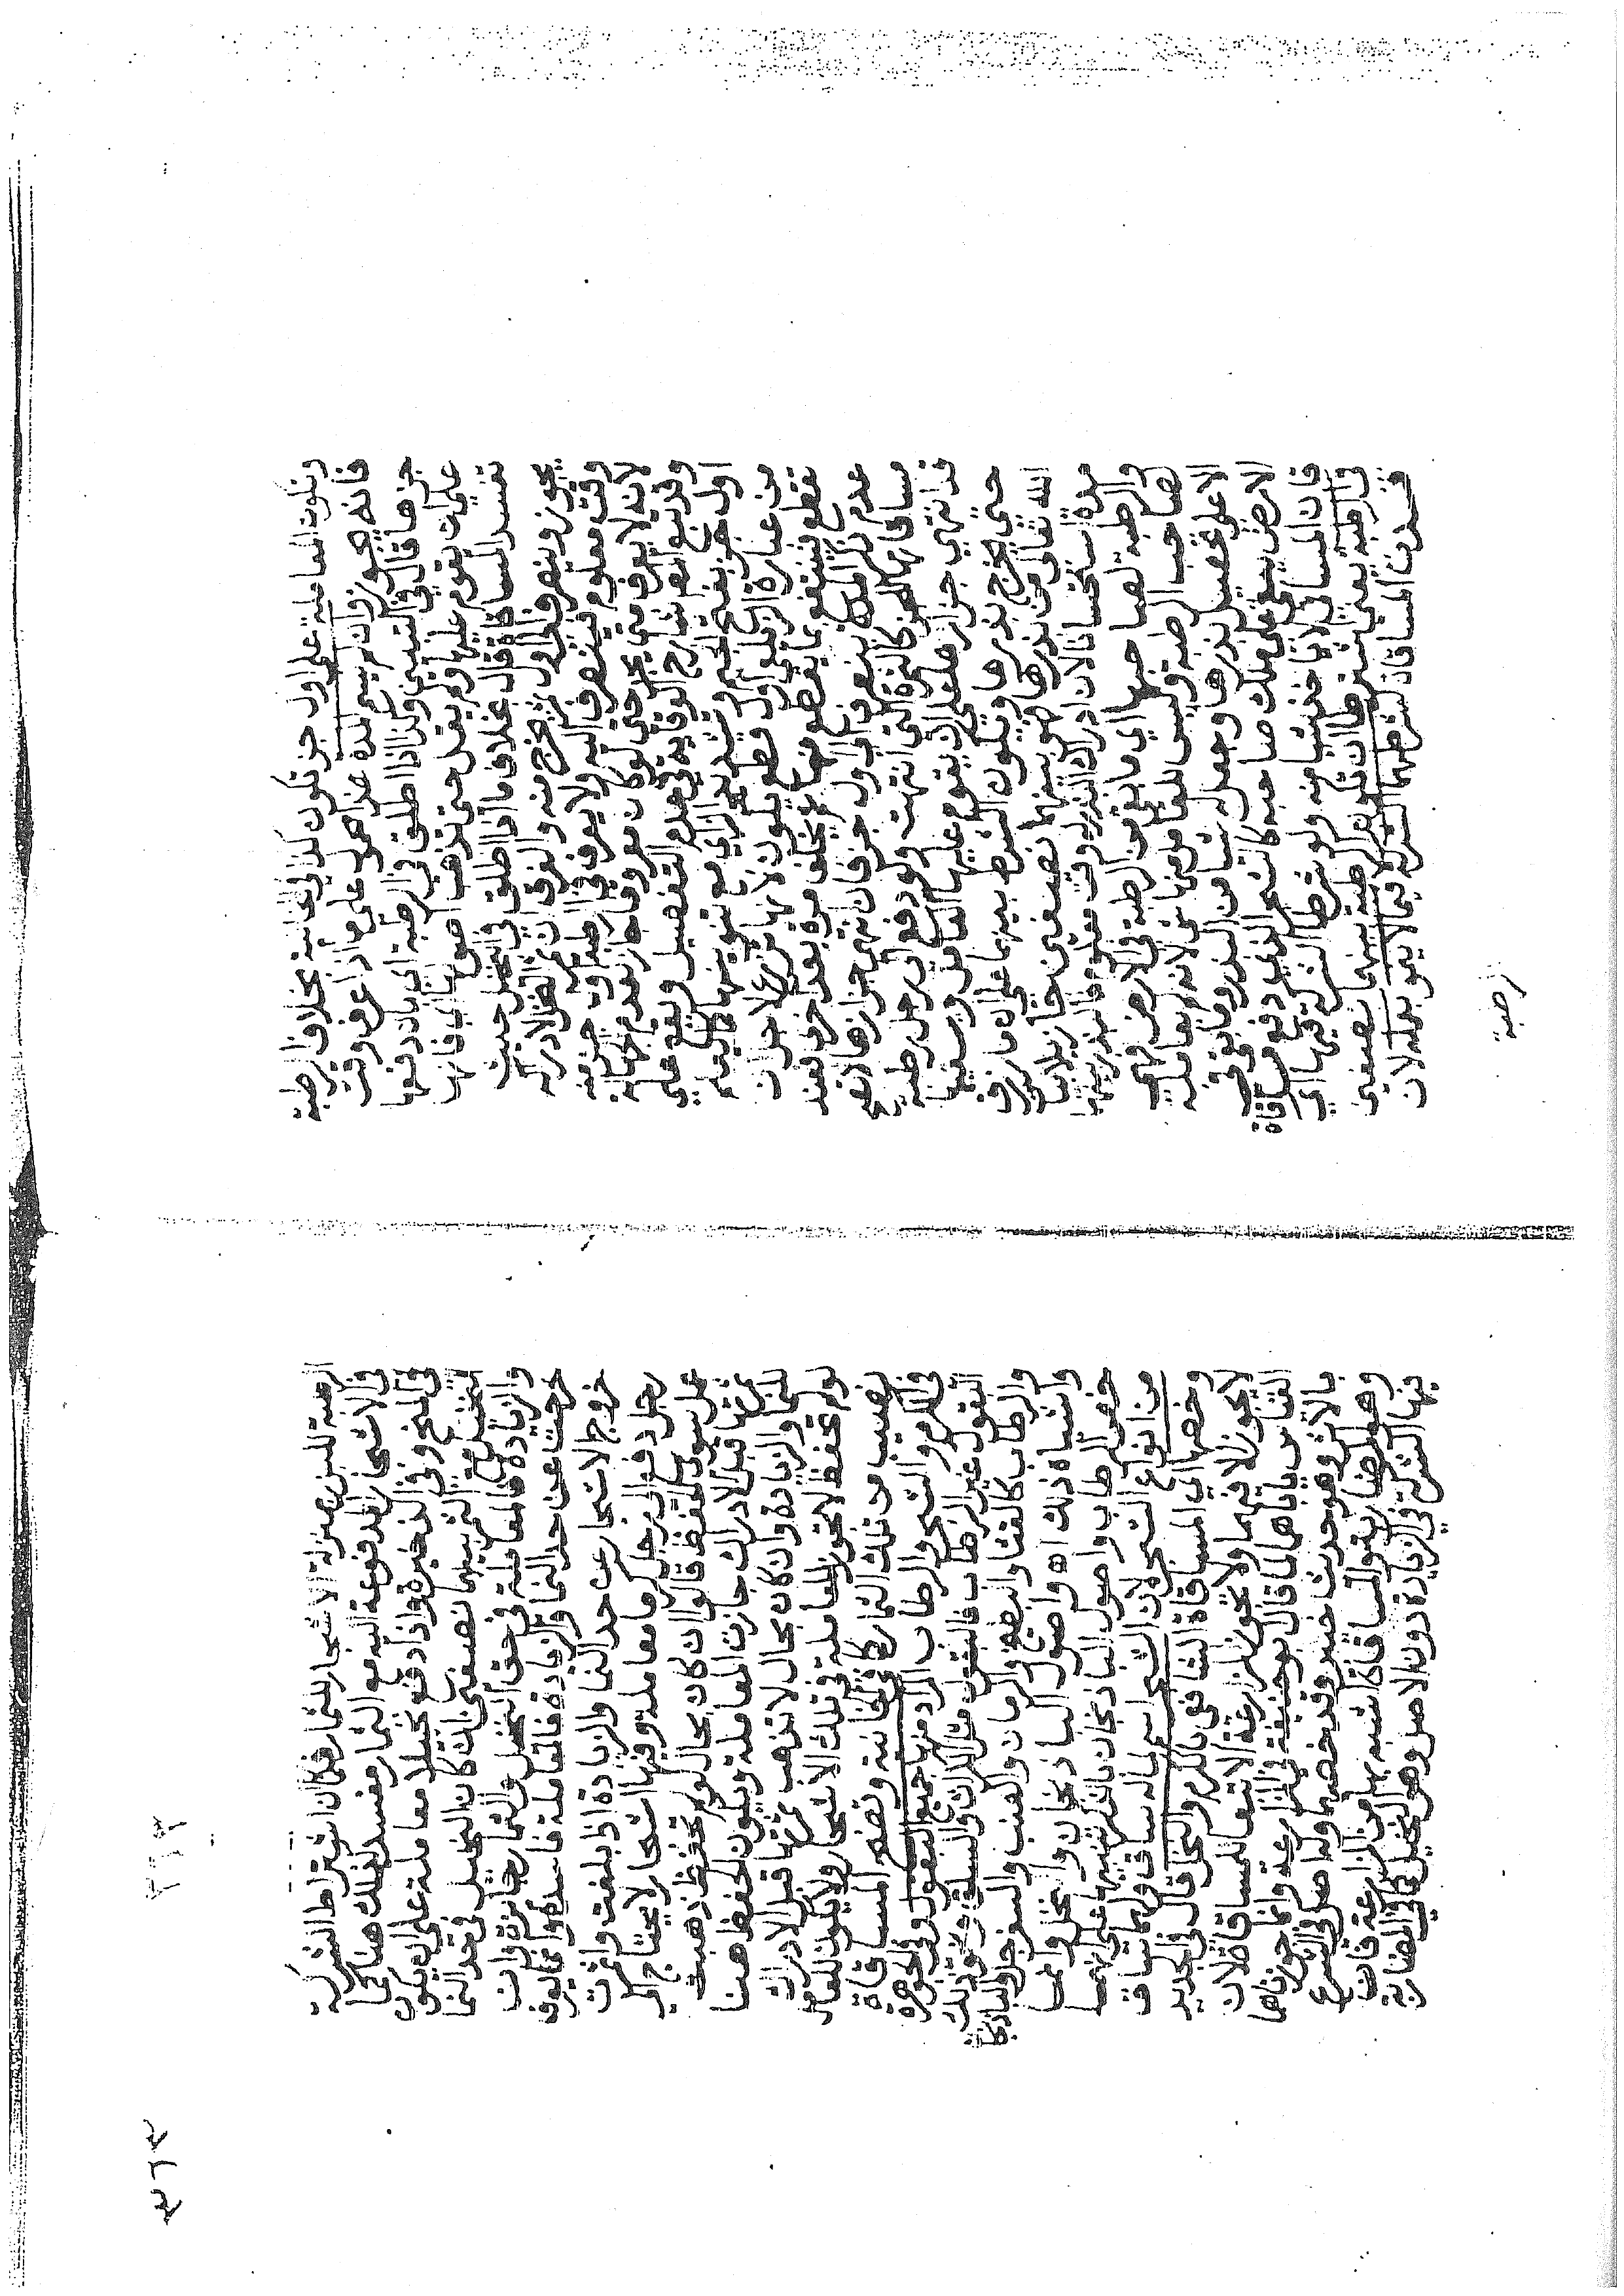 وتكون المعاملة على اول جز تكون كذا في الخانية بخلاف الرطبة
فانه يجوز وان لم يسم المدة هذا محمول على ما اذا عرف وقت
جزها قال في التبيين وكذا اذا اطلق في الرطبة اي بان دفعها
على ان يقوم عليها ولم يقل حتى تذهب اصولها اي فانها
تفسد المساقاة قال بخلاف ما اذا اطلق في النخل حيث
يجوز وينصرف الى اول ثمر يخرج منه والفرق ان ثمر النخل لادراكه
وقت معلوم فينصرف اليه ولا يعرف في الرطبة اول جزة منه
لانه لا يعرف متى يجز حتى لو كان معروفا جاز لعدم الجهالة
وقد تبع المص شارح الوقاية في عدم التفصيل وبقي على
اول جز بفتح الجيم وتشديد الزاي مع تنوينها
من عبارة الزيلعي اول قطع يكون لانها تزرع لاجل ان
تقطع فينتفع بما يقطع منها ثم يخلف مرة بعد اخرى فعند
عدم ذكر المدة ينصرف الى اول جز فان انتهى جزازها لا تقع
مساقاتها لكن كالثمرة التي انتهت ولو دفع الى رجل رطبة
قد انتهى جزازها على ان يقوم عليها العامل ويسقيها
حتى يخرج بذرها ويكون الشرط بينهما على ان ما رزق
الله تعالى من بذرها فهو بينهما نصفين جاز بلا بيان
مدة استحسانا لان ادراك البذر له وقت معلوم فالبذر بينهما
والرطبة لصاحبها اي ما بقي من الرطبة في الارض فهي
لصاحب الرطبة وليس للعامل منها شئ لانه لم يعامله
الا على تحصيل بذرها وجعل له شيا من البذر وما بقي في
الارض يبقى على ملك صاحبه كالشجر الذي دفع مساقاة
فان المساقي لا ياخذ شيا منه ولو شرطا الشركة فيها اي
في الرطبة يعني اشترطا ان تكون الرطبة بينهما نصفين
فسدت المساقاة لشرطهما الشركة فيما لا ينمو بعمله لان
رطبة
الرطبة للبذر بمنزلة الاشجار للثمار فكان اشتراط الشركة
في الاشجار المدفوعة اليه مع الثمار مفسد فكذلك هنا كما
في المنح وفي الذخيرة واذا دفع نخيلا معاملة على ان يكون
النخيل مع الثمر بينهما نصفين ان كان النخيل في حد النما
والزيادة فالمعاملة في حق النخل والثمار جائزة وان
خرجت عن حد النما والزيادة فالمعاملة فاسدة وانما يعرف
خروج الاشجار عن حد النما والزيادة اذا بلغت واثمرت
رجل دفع الى رجل كرما معاملة وفيها اشجار لا يحتاج الى
عمل سوى الحفظ قالوا ان كان بحال لو لم تحفظ ذهبت
ثمرتها قبل الادراك جازت المعاملة ويكون الحفظ هنا
للنما والزيادة وان كان بحال لا تذهب ثمرتها قبل الادراك
لو لم تحفظ لا تجوز المعاملة في تلك الاشجار ولا يكون للعامل
نصيب من تلك الثمار كذا في الخانية وتصح المساقاة
في الكرم والشجر والرطاب المراد منها جميع البقول وفي الجوهرة
البقول غير الرطاب فالبقول مثل الكراث والسلق ونحو ذلك
والرطاب كالقثا والبطيخ والرمان والعنب والسفرجل والباذنجان
واشباه ذلك اه واصول الباذنجان والنخل وانما
خص الرطاب واصول الباذنجان بالذكر تنبيها على انهما
من انواع الشجر لان الشجر اسم لما له ساق ولهما ساق
وخصها اي المساقاة الشافعي بالكرم والنخل قال في الجديد
لا يجوز الا فيهما ولا تجوز المزارعة الا تبعا للمساقاة لان
القياس ياباها كما قال ابو حنيفة في المزارعة وانما جوزناها
بالاثر وهو حديث خيبر وقد خصهما ولنا اصل في الشرع
وهو المضاربة والمساقاة اشبه بها من المزارعة فان
فيها الشركة في الزيادة دون الاصل وهو النخيل كما في المضاربة